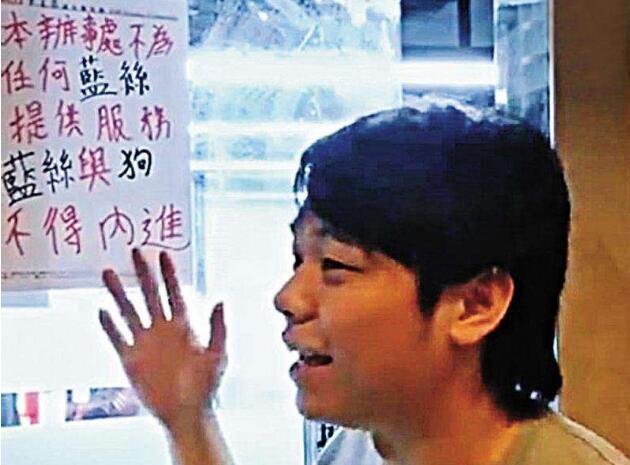 本辦事處不為
任何藍絲
提供服務
藍絲與狗
不得內進